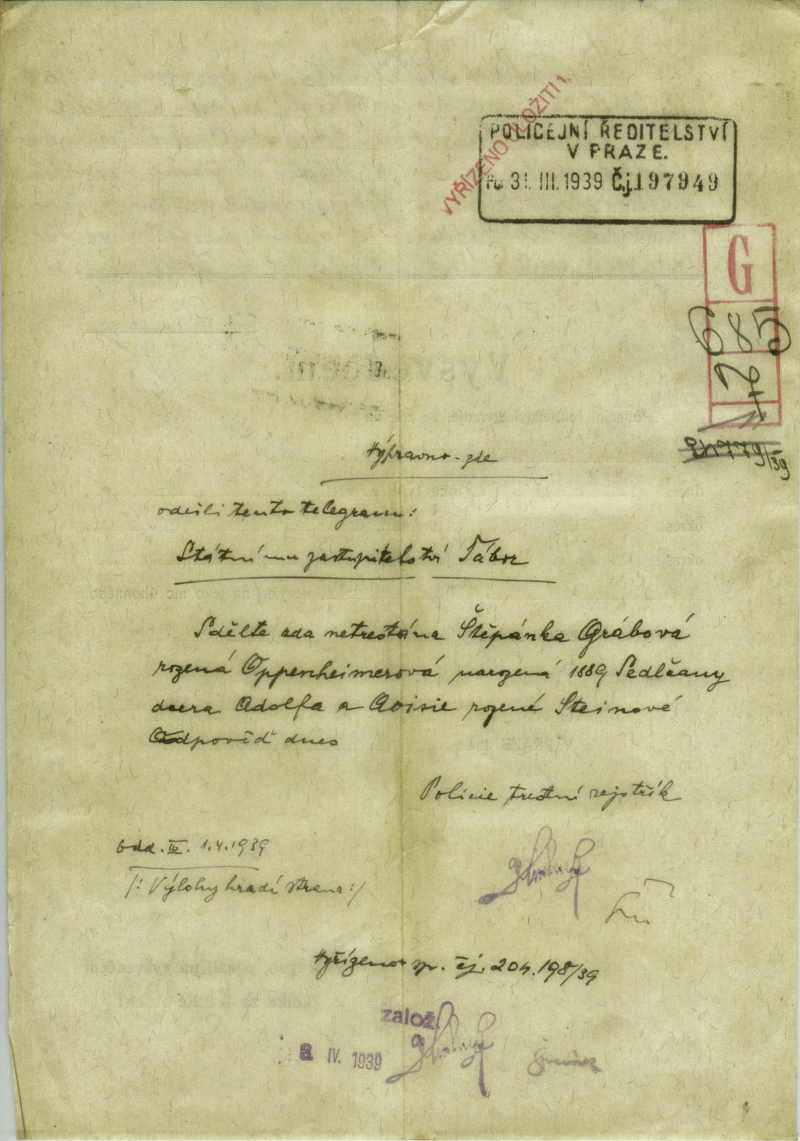 VYŘÍZENO ULOŽITI
POLICEJNÍ ŘEDITELSTVÍ
V PRAZE.
31. III. 1939 Čj. 197949
G
685
odešli tento telegram:
Státnímu zastupitelství Tábor
Sdělte zda netrestána Štěpánka Grábová
rozená Oppenheimerová narozená 1889 Sedlčany
dcera Adolfa a rozené Steinové
Odpověď dnes
Policie trestní rejstřík
odd. IV. 1.4.1939
/: Výlohy hradí strana :/
Vyřízeno čj. 204.198/39
založ.
IV. 1939